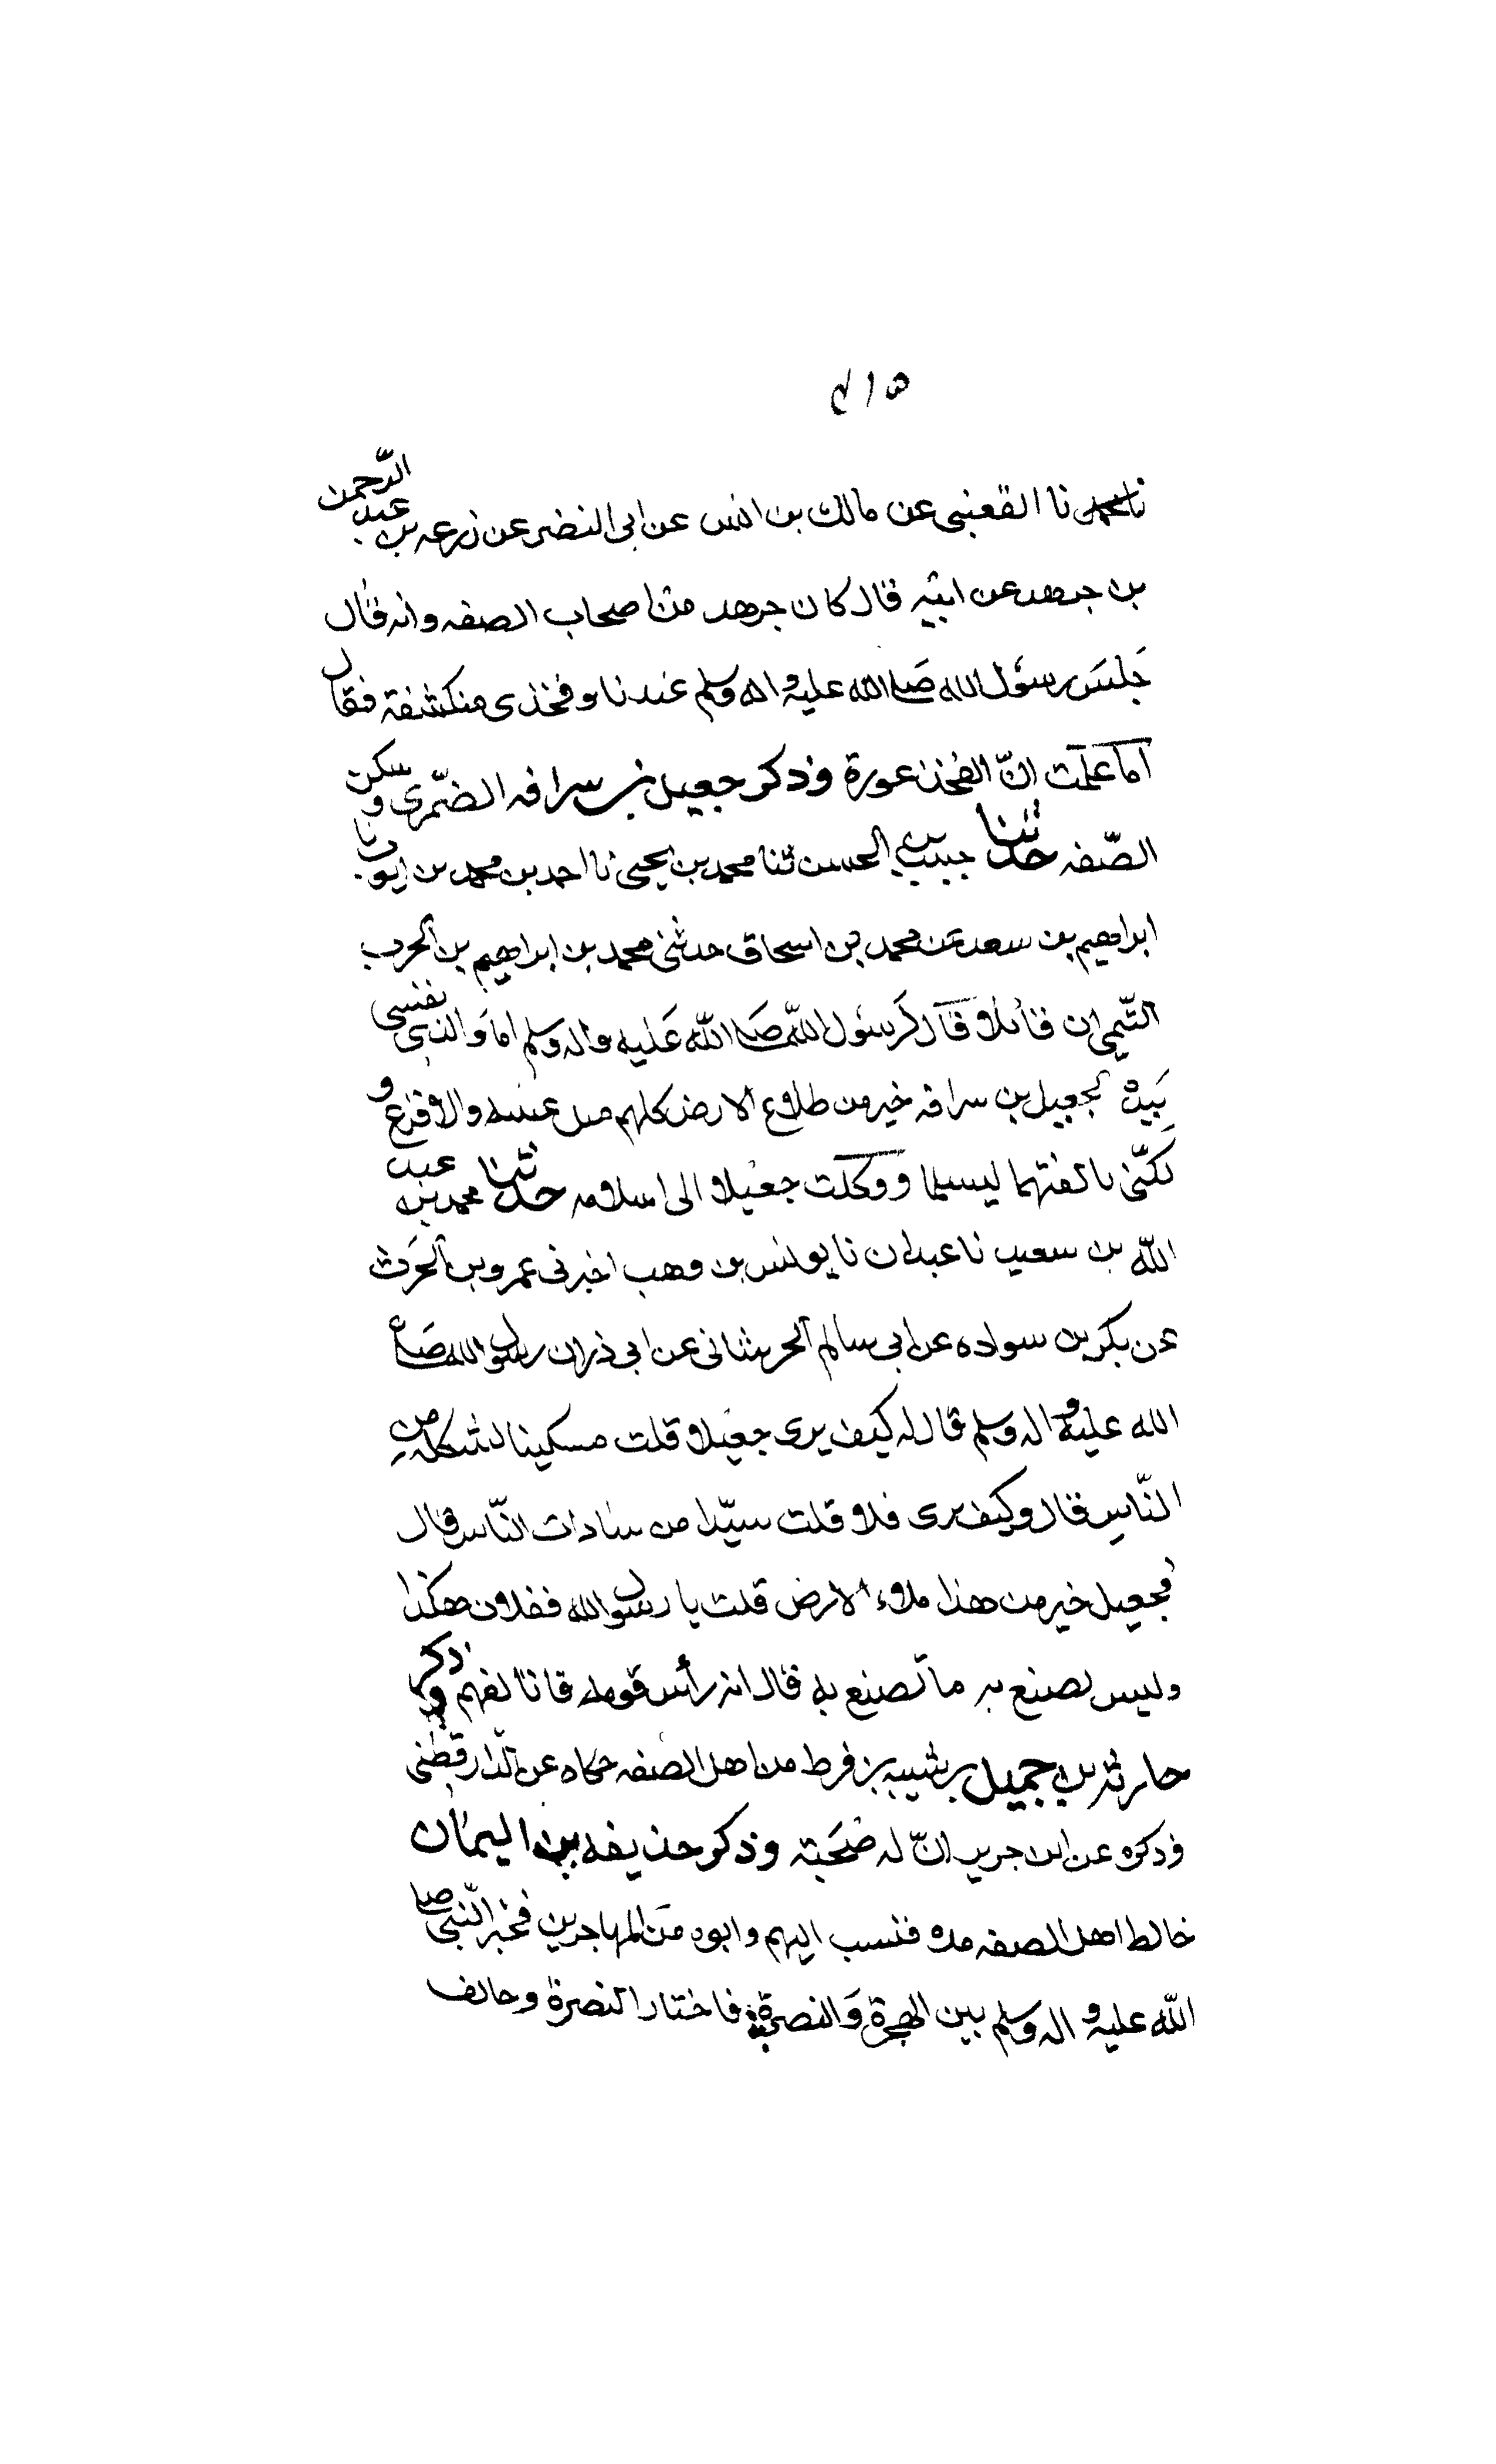 ٤١٥
نا محمد نا القعنبى عن مالك بن انس عن ابى النضر عن زرعه بن عبد الرّحمن
بن جرهد عن ابيه قال كان جرهد من اصحاب الصفه وانه قال
جَلسَ رسُول الله صَلى الله عليه واله وسلم عندنا وفخذى منكشفة فقال
اما علمت انّ الفخذ عورة وذكر جعيل بن سراقه الضّمرى وسكن
الصّفه حدثنا حبيب بن الحسن ثنا محمد بن يحيى نا احمد بن محمد بن ايوب نا
ابراهيم بن سعد عن محمد بن اسحاق حدثنى محمد بن ابراهيم بن الحرب
التّيمى ان قائلا قال لرسُول اللّه صَلى اللّه عَليه واله وسلم اما وَالذى نفسى
بيَده لجعيل بن سراقه خير من طلاع الارض كلهم مثل عينيه والاقرع و
لكنّى تالفتهما ليسلما ووكلت جعيلا الى اسلامه حدثنا محمد بن عبد
اللّه بن سعيد نا عبدان نا يونس بن وهب اخبرنى عمرو بن الحَرث
عن بكر بن سواده عن ابى سالم الحريثانى عن ابى ذر ان رسول الله صَلى
الله عليه واله وسلم قال له كيف يرى جعيلا قلت مسكينا لشكله من
النّاس قال وكيف يرى فلا قلت سيّدا من سادات النّاس قال
فجعيل خير من هذا ملاء الارض قلت يا رسول الله ففلان هكذا
وليس تصنع به ما تصنع به قال انه رأس قومه فانا الفهم وذكر
حارثه بن جميل بن شيبه بن قرط من اهل الصفه حكاه عن الدّارقطنى
وذكره عن ابن جرير انّ له صُحبَته وذكر حذيفه بن اليمان
خالط اهل الصفه مده فنسب اليهم وابوه من المهاجرين فخيّر النّبى صلى
اللّه عليه واله وسلم بين الهجرة وَالنصرة فاختار النصرة وحالف